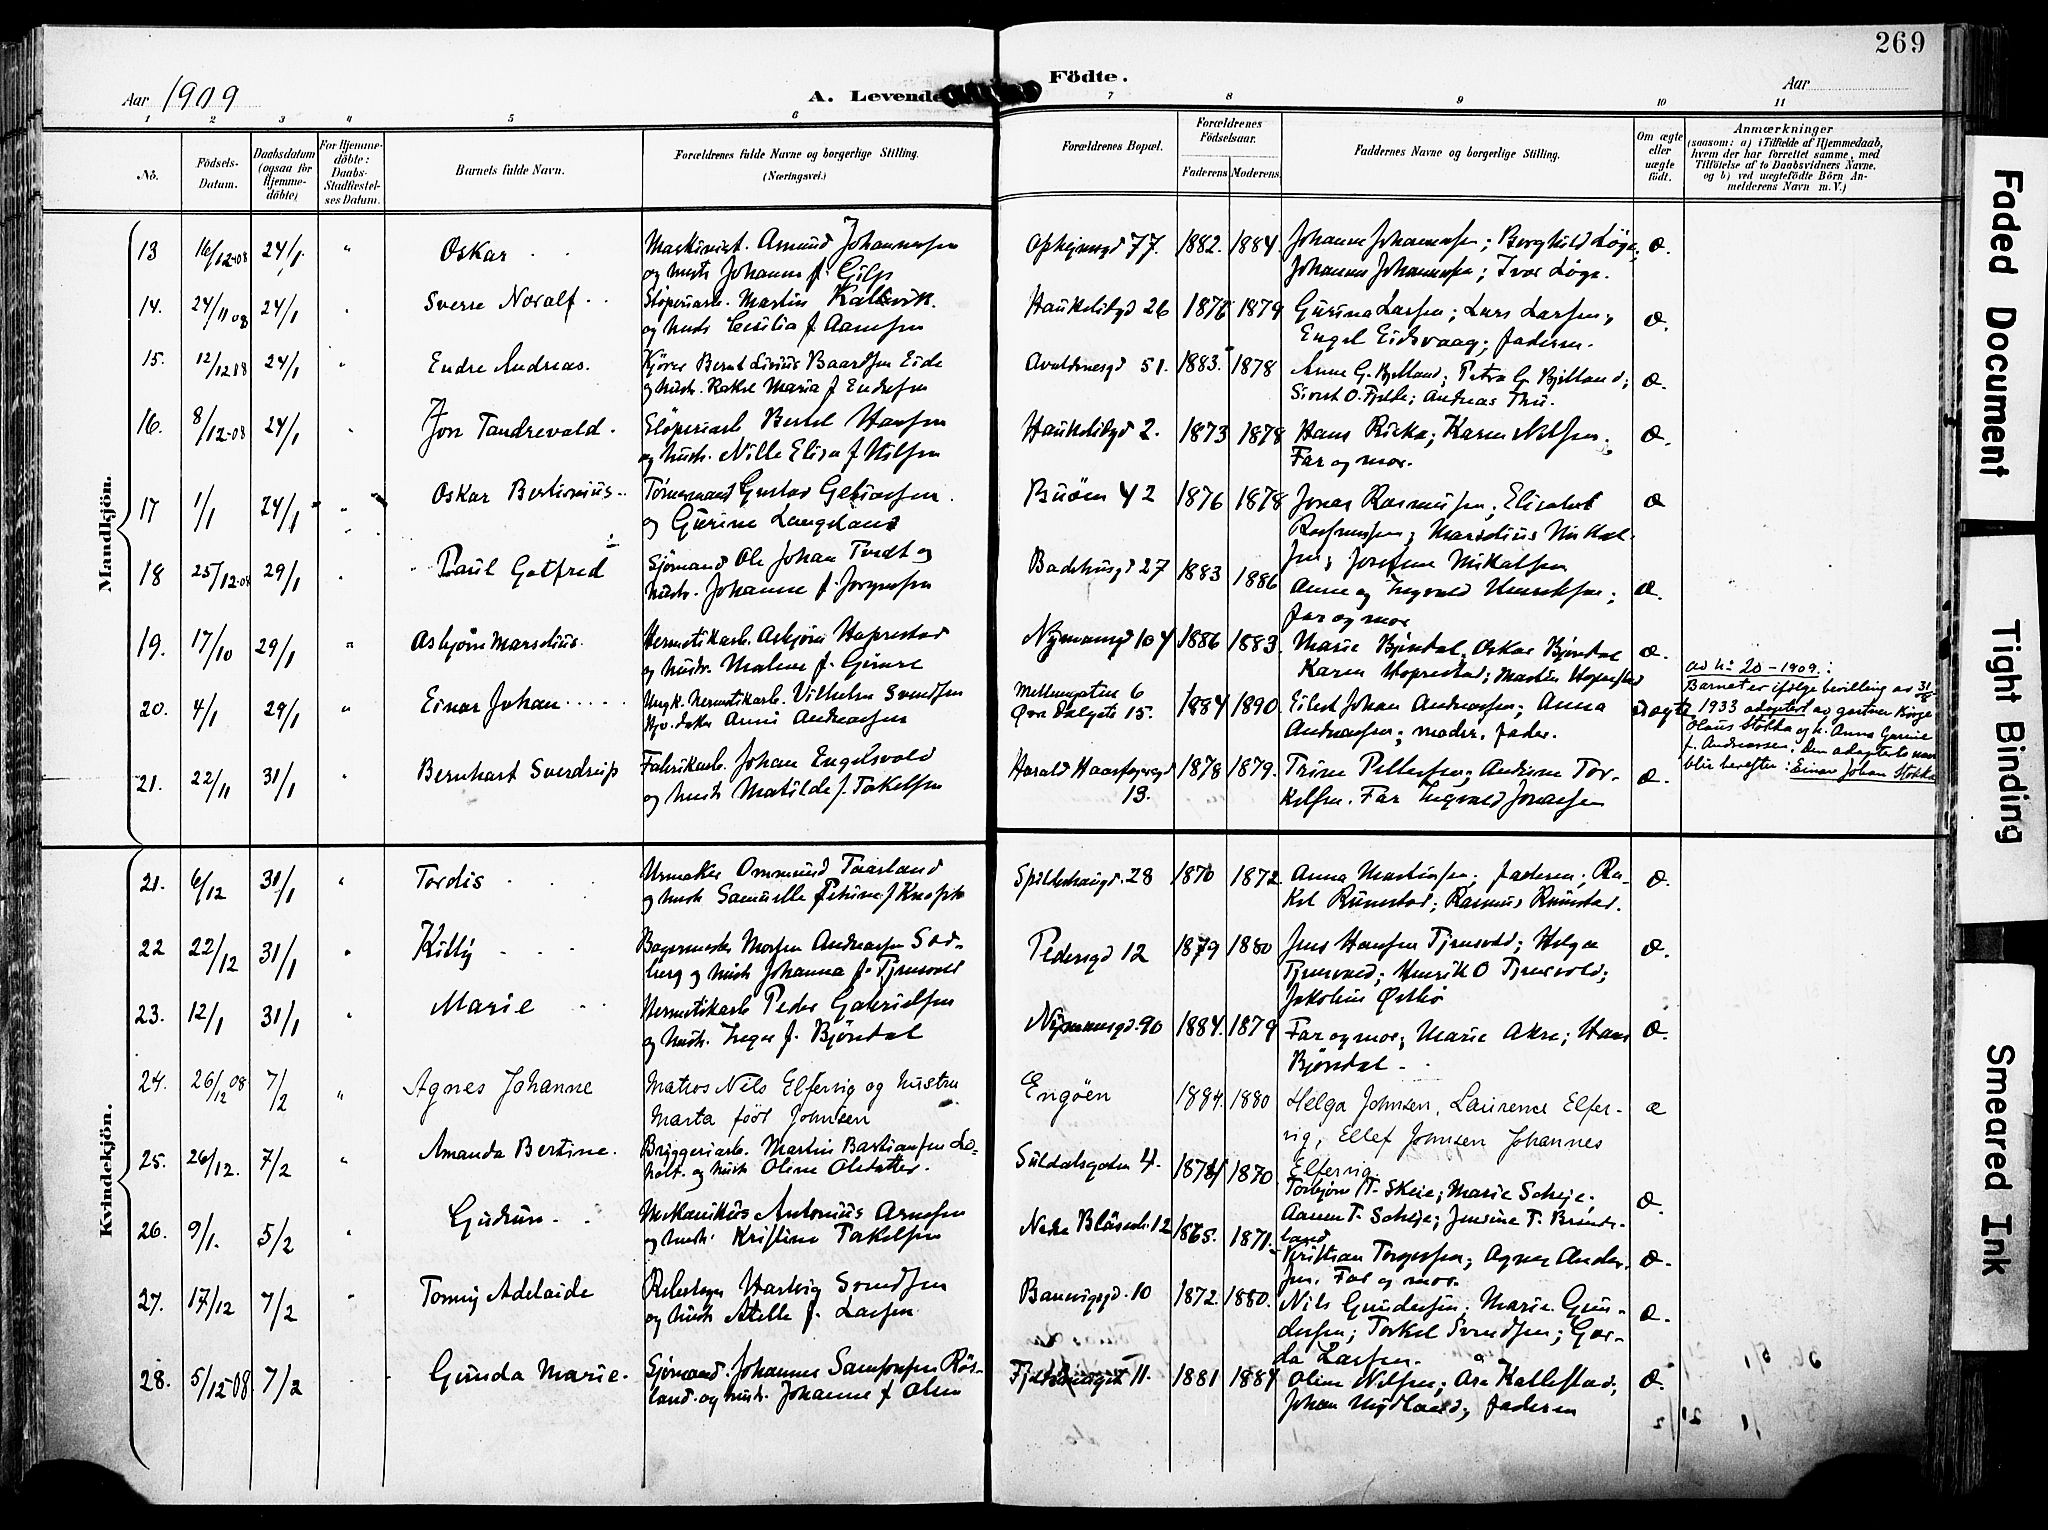 269
Aar 1909
A. Levende
Födte.
Aar
1 2 3 4 5 6 7 8 9 10 11
No.
Födsels-
Datum.
Daabsdatum
(ogsaa for
Hjemme-
döbte)
For Hjemme-
döbte:
Daabs-
Stadfæstel-
ses Datum.
Barnets fulde Navn.
Forældrenes fulde Navne og borgerlige Stilling.
(Næringsvei.)
Forældrenes Bopæl.
Forældrenes
Födselsaar.
Faderens Moderens
Faddernes Navne og borgerlige Stilling.
Om ægte
eller
uægte
født.
Anmærkninger
(saasom: a) i Tilfælde af Hjemmedaab,
hvem der har forrettet samme, med
Tilföielse af to Daabsvidners Navne.
og b) ved uægtefödte Börn An-
melderens Navn m. V.)
Mandkjön.
13 16/12-08 24/1 " Oskar Maskinist. Amund Johannessen
og hust. Johanne f. Gilje
Opheimsgd 77. 1882. 1884. Johanne Johannessen; Borghild Løge;
Johannes Johannessen; Ivar Løge. Æ.
14. 24/11 08 24/1 " Sverre Noralf Støperiarb. Martin Kallevik
og hust. Cecilia f. Aanesen
Haukelibgd 26 1876 1879 Gurina Larsen; Lars Larsen,
Engel Eidsvaag; faderen. Æ.
15. 12/12 08 24/1 " Endre Andreas. Kjører Bernt Sivius Baardsen Eide
og hust. Rakel Maria f Endresen
Avaldsnesgd 51. 1883. 1878 Anne G. Bjelland; Petra G. Bjelland;
Sivert O. Fjelde; Andreas Thu. Æ.
16. 8/12-08 24/1 " Jon Tandrevald. Støperiarb Bertel Hansen
og hust. Nille Elisa f Nilsen
Haukelibgd 2. 1873 1878 Hans Riska; Karen Nilsen;
Far og mor. Æ.
17 1/1 24/1 " Oskar Bertinius. Tømmermand Gustav Gabrielsen
og Gurine Langeland
Buøen 42 1876 1878 Jonas Rasmussen; Elisabet
Rasmussen; Marselius Mikal-
sen; Josefine Mikalsen Æ
18 25/12-08 29/1 " Paul Gotfred Sjømand Ole Johan Tvedt og
hust. Johanne f. Jørgensen
Badehusgd 27 1883 1886 Anne og Ingvald Henriksen;
far og mor Æ.
19. 17/10 29/1 " Asbjørn Marselius. Hermetikarb. Asbjørn Hoprestad
og hust. Malene f. Gimre
Nymansgd 104 1886 1883. Marie Bjøndal, Oskar Bjøndal
Karen Hoprestad; Martin Hoprestad Æ.
20. 4/1 29/1 " Einar Johan Ungk. hermetikarb. Vilhelm Svendsen
Anni Andreassen
Møllegaten 6
Øvr Dalgate 15. 1884 1890. Eilert Johan Andreassen; Anna
Andreassen; moder, fader. Uægte
ad No 20 - 1909:
Barnet er ifølge bevilling av 31/5
1933 adoptert av gartner Børge
Olaus Stokka og h. Anna Gurine
f. Andreassen. Den adoptertes navn
blir herefter: Einar Johan Stokka
21. 22/11 31/1 " Bernhart Sverdrup Fabrikarb. Johan Engelsvold
og hust Matilde f. Takelsen
Harald Haarfagresgd
19. 1878 1879. Trine Pettersen; Andrine Tor-
kelsen. Far Ingvald Jonassen Æ.
Kvindekjön.
21. 6/12 31/1 " Tordis Urmaker Ommund Taarland
og hust Samuelle Petrine f Knopk
Spilderhaugd. 28 1870 1872. Anna Martinsen; faderen; Ra-
kel Runestad; Rasmus Runestad. Æ.
22 22/12 31/1 " Killy Bagermester Morten Andreassen Sod-
berg og hust Johanna f. Tjensvold
Pedersgd 12 1879 1880 Jens Hansen Tjensvold; Helga
Tjensvold; Henrik O Tjensvold;
Jakobine Østbø Æ.
23. 12/1 31/1 " Marie Hermetikarb Peder Gabrielsen
og hust. Inger f. Bjøndal
Nymansgd. 90 1884. 1879 Far og mor; Marie Akre; Hans
Bjøndal Æ.
24. 26/12 08 7/2 " Agnes Johanne Matros Nils Elfervig og hustru
Marta født Johnsen
Engøen 1884. 1880 Helga Johnsen, Laurence Elfer-
vig, Ellef Johnsen Johannes
Elfervig. Æ
25. 26/12. 7/2 " Amanda Bertine. Bryggeriarb. Martin Bastiansen Lo-
holt. og hust Oline Olsdatter.
Suldalsgaten 4. 1874 1870 Torbjørn T. Skeie; Marie Scheje.
Aanen T. Scheje; Jensine T. Brunde-
land Æ.
26. 9/1. 5/2 " Gudrun Mekanikus Antonius Arnesen
og hust. Kristine Torkelsen
Nedre Blåsenb. 12 1865. 1871. Kristian Torgersen; Agnes Ander-
sen. Far og mor. Æ.
27. 17/12 7/2 " Tonny Adelaide Rebslager Hartvig Svendsen
og hust Atelle f. Larsen
Banevigsgd. 10 1872. 1880. Nils Gundersen; Marie Gun-
dersen; Torkel Svendsen; Gar-
da Larsen. Æ.
28. 5/12-08 7/2 Gunda Marie. Sjømand. Johannes Samsonsen Røs-
land. og hust. Johanne f Olsen
11. 1881 1884 Oline Nilsen; Åsa Kallestad;
Johan Mydland; faderen Æ.
Faded Document
Tight Binding
Smeared Ink